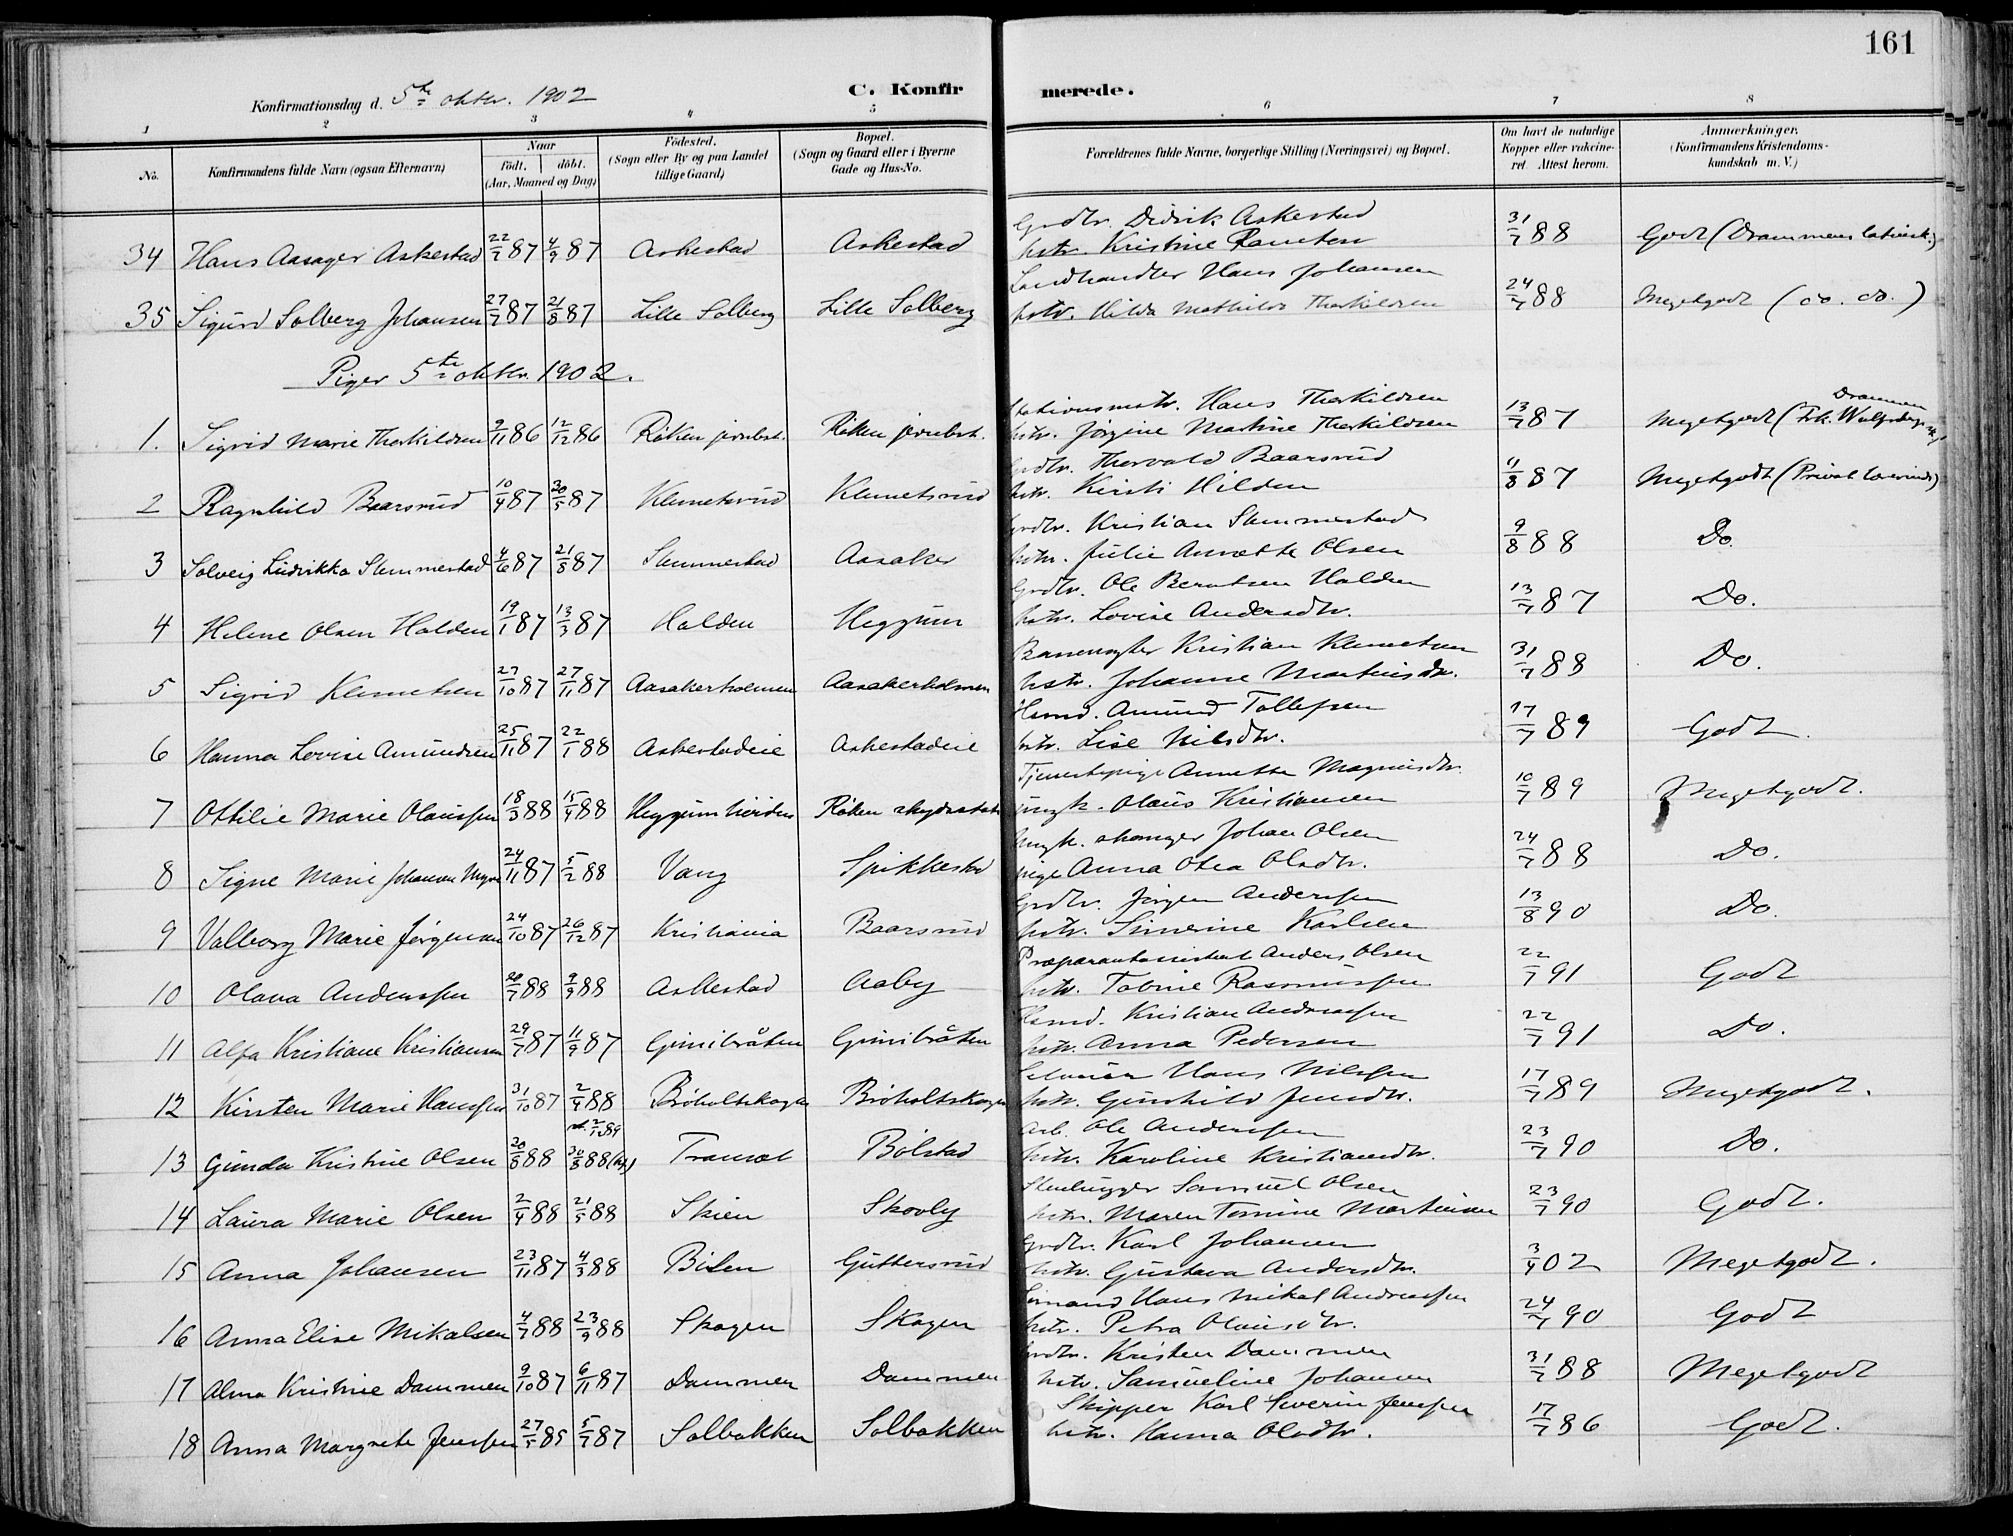 161
Konfirmationsdag d. 5te oktbr. 1902
C. Konfirmerede.
1 2 3 4 5 6 7 8
No. Konfirmandens fulde Navn (ogsaa Efternavn) Naar født. døbt. (Aar, Maaned og Dag) Fødested. (Sogn eller By og paa Landet tillige Gaard) Bopæl. (Sogn og Gaard eller i Byerne Gade og Hus-No. Forældrenes fulde Navne, borgerlige Stilling (Næringsvei) og Bopæl. Om havt de naturlige Kopper eller vakcineret. Attest herom. Anmærkninger. (Konfirmandens Kristendomskundskab m. V.)
34 Hans Aasager Askestad 22/7 87 4/9 87 Askestad Askestad Grdbr. Didrik Askestad hstr. Kristine 31/7 88 Godt (Drammens latinsk.)
35 Sigurd Solberg Johansen 27/7 87 21/8 87 Lille Solberg Lille Solberg Landhandler Hans Johansen hstr. Hilda Mathilde Therkildsen 24/7 88 Megetgodt (do. do.)
Piger 5te oktbr. 1902.
1. Sigrid Marie Therkildsen 9/11 86 12/12 86 Røken jernbst. Røken jernbst. Stationsmstr. Hans Therkildsen hstr. Jørgine Martine Therkildsen 13/7 87 Megetgodt (Drammen Frk.
2 Ragnhild Baarsrud 10/4 87 30/5 87 Klemetsrud Klemetsrud Grdbr. Thorvald Baarsrud hstr. Kirsti Hilden 11/8 87 Megetgodt (Privat
3 Solveig Ludvikka Slemmestad 4/6 87 21/8 87 Slemmestad Aasaker Grdbr. Kristian Slemmestad hstr. Julie Annette Olsen 9/8 88 Do.
4 Helene Olsen Halden 19/1 87 13/3 87 Halden Heggum Grdbr. Ole Berntsen Halden hstr. Lovise Andersdtr. 13/7 87 Do.
5 Sigrid Klemetsen 27/10 87 27/11 87 Aasakerholmen Aasakerholmen Banevogter Kristian Klemetsen hstr. Johanne Martinsdtr. 31/7 88 Do.
6 Hanna Lovise Amundsen 25/11 87 22/1 88 Askestadeie Askestadeie Hsmd. Amund Tollefsen hstr. Lise Nilsdtr. 17/7 89 Godt.
7 Ottilie Marie Olaussen 18/3 88 15/4 88 Heggumhverden Røken skydsstat. Tjenestepige Annette Magnusdtr. ungk. Olaus Kristiansen 10/7 89 Megetgodt.
8 Signe Marie Johansen 24/11 87 5/2 88 Vang Spikkestad Ungk. skomager Johan Olsen pige Anna Olea Olsdtr. 24/7 88 Do.
9 Valborg Marie Jørgensen 24/10 87 26/12 87 Kristiania Baarsrud Grdbr. Jørgen Anderssen hstr. Simerine Karlsen 13/8 90 Do.
10 Olava Anderssen 20/7 88 9/9 88 Askestad Aaby Anders Olsen hstr. Tobine Rasmussen 22/7 91 Godt
11 Alfa Kristiane Kristiansen 29/7 87 11/9 87 Gjinibråten Gjinibråten Hsmd. Kristian Andreassen hstr. Anna Pedersen 22/7 91 Do.
12 Kirsten Marie Hanssen 31/10 87 2/4 88 Brøholtskogen Brøholtskogen Hans Nilssen hstr. Gunhild Jensdtr. 17/7 89 Megetgodt.
13 Gunda Kristine Olsen 20/8 88 30/8 88 Transet Bølstad Arb. Ole Anderssen hstr. Karoline Kristiansdtr. 23/7 90 Do.
14 Laura Marie Olsen 2/4 88 21/5 88 Skien Skovly Stenhugger Samuel Olsen hstr. Maren Tomine Martinsen 23/7 90 Godt.
15 Anna Johansen 23/11 87 4/3 88 Bilen Guttersrud Grdbr. Karl Johansen hstr. Gustava Andersdtr. 3/4 02 Megetgodt.
16 Anna Elise Mikalsen 4/7 88 23/9 88 Skogen Skogen Sømand Hans Mikal Andreassen hstr. Petra Olausdtr. 24/7 90 Godt
17 Alma Kristine Dammen 9/10 87 6/11 87 Dammen Dammen Grdbr. Kristen Dammen hstr. Samueline Johansen 31/7 88 Megetgodt
18 Anna Margrete Jenssen 27/5 85 5/7 87 Solbakken Solbakken Skipper Karl Severin Jenssen hstr. Hanna Olsdtr. 17/7 86 Godt.